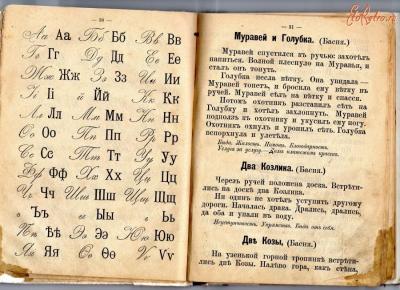 — 30 —
Аа Аа Бб Бб Вв Вв
Гг Гг Дд Дд Ее Ее
Жж Жж Зз Зз Ии Ии
Іі Іі Йй Йй Кк Кк
Лл Лл Мм Мм Нн Нн
Оо Оо Пп Пп Рр Рр
Сс Сс Тт Тт Уу Уу
Фф Фф Хх Хх Цц Цц
Чч Чч Шш Шш Щщ Щщ
ъ Ъъ ы Ыы ь Ьь
Ѣѣ Ѣѣ Ээ Ээ Юю Юю
Яя Яя Ѳѳ Ѳѳ Ѵѵ Ѵѵ
— 31 —
Муравей и Голубка. (Басня.)
Муравей спустился къ ручью: захотѣлъ
напиться. Волной плеснуло на Муравья, и
сталъ онъ тонуть.
Голубка несла вѣтку. Она увидала—
Муравей тонетъ, и бросила ему вѣтку въ
ручей. Муравей сѣлъ на вѣтку и спасся.
Потомъ охотникъ разставилъ сѣть на
Голубку и хотѣлъ захлопнуть. Муравей
подползъ къ охотнику и укусилъ ему ногу.
Охотникъ охнулъ и уронилъ сѣть. Голубка
вспорхнула и улетѣла.
Бѣда. Жалость. Помощь. Благодарность.
Услуга за услугу.
Два Козлика. (Басня.)
Черезъ ручей положена доска. Встрѣти-
лись на доскѣ два Козлика.
Ни одинъ не хотѣлъ уступить другому
дороги. Началась драка. Дрались, дрались,
да оба и упали въ воду.
Неуступчивость. Упрямство. Бѣда отъ себя.
Двѣ Козы, (Басня.)
На узенькой горной тропинѣ встрѣти-
лись двѣ Козы. Налѣво гора, какъ стѣна,
EtoRetro.ru